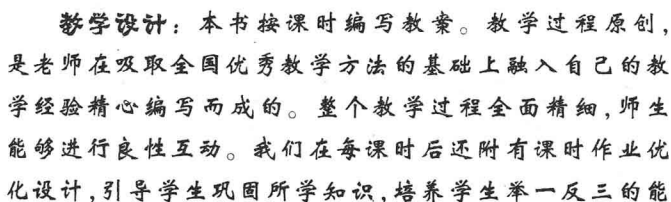 教学设计：本书按课时编写教案。教学过程原创，
是老师在吸取全国优秀教学方法的基础上融入自己的教
学经验精心编写而成的。整个教学过程全面精细，师生
能够进行良性互动。我们在每课时后还附有课时作业优
化设计，引导学生巩固所学知识，培养学生举一反三的能